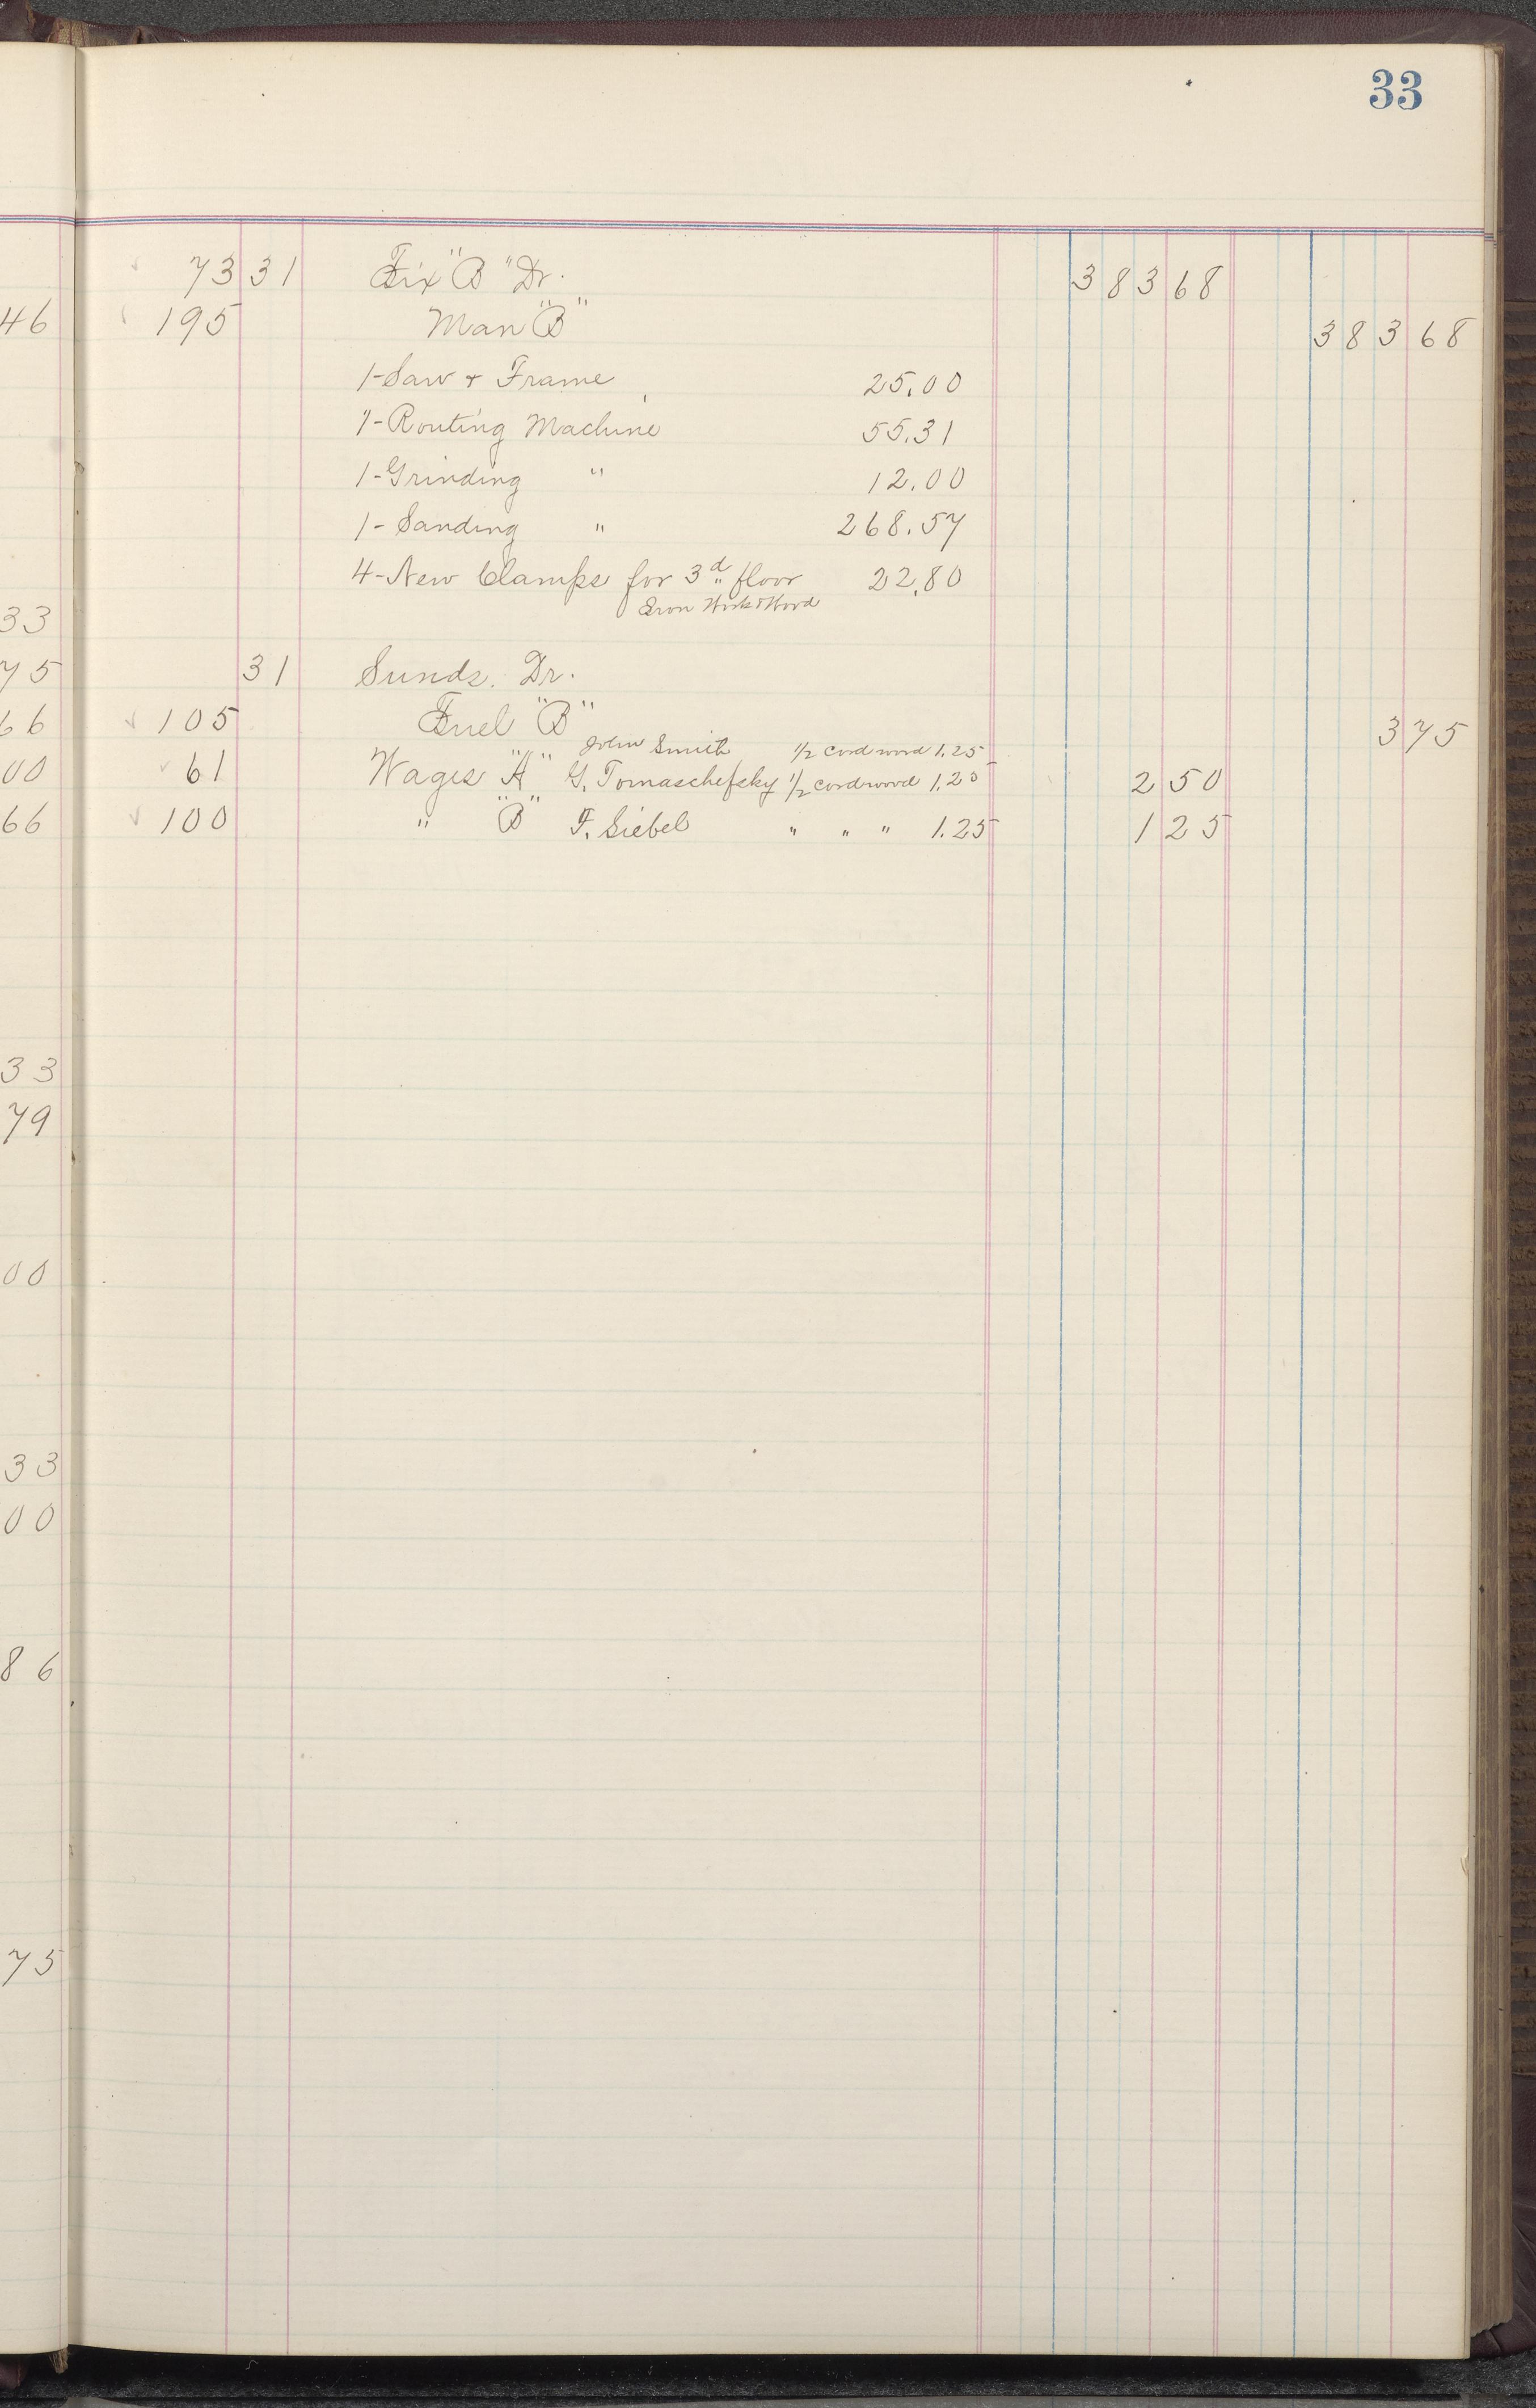 33
73 31 Fix "B" Dr. 383 68
46 195 Man "B" 383 68
1-Saw + Frame 25.00
1-Routing Machine 55.31
1-Grinding " 12.00
1-Sanding " 268.57
4-New Clamps for 3d floor 22.80
Iron Work & Wood
33
75 31 Sunds. Dr.
66 105 Fuel "B" 3 75
John Smith 1/2 cord wood 1.25
00 61 Wages "A" G. Tomaschefsky 1/2 cord wood 1.25 2 50
66 100 " "B" F. Siebel " " " 1.25 1 25
33
79
00
33
00
86
75